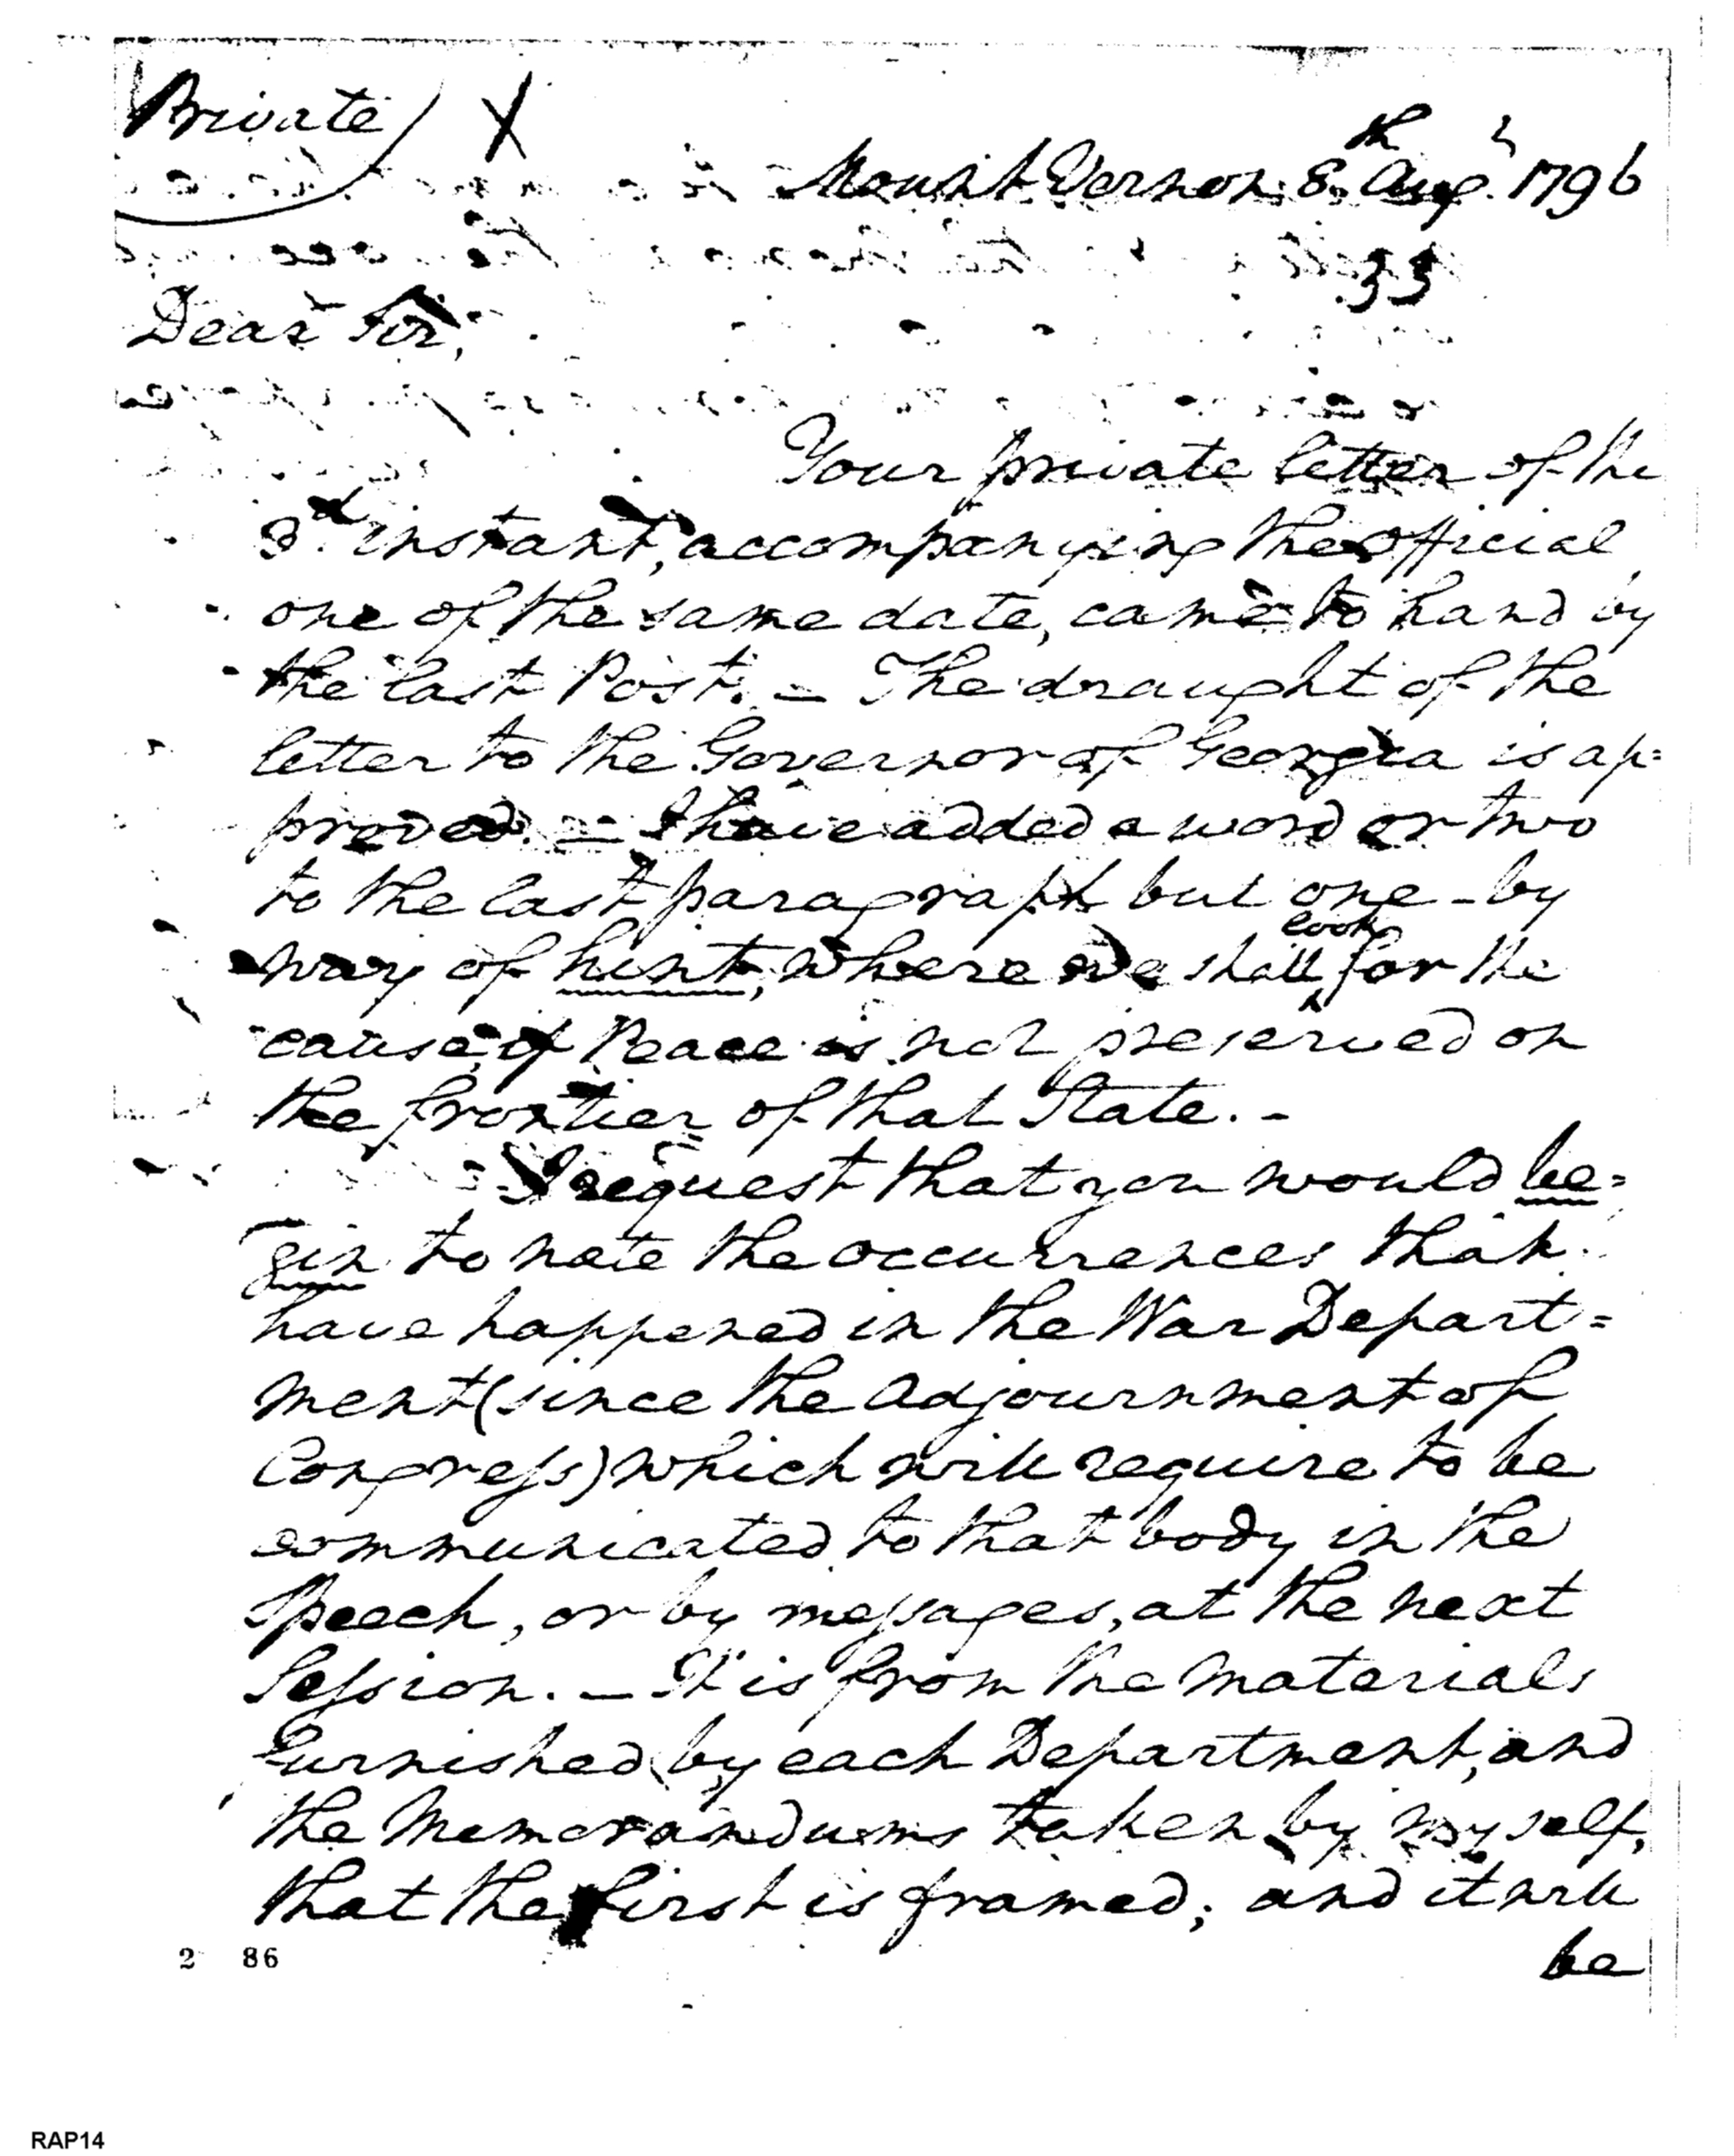 Private X
Mount Vernon 8th Augt 1796
33
Dear Sir,
Your private letter of the
3d instant, accompanying the official
one of the same date, came to hand by
the last Post. – The draught of the
letter to the Governor of Georgia is ap=
proved. – I have added a word or two
to the last paragraph but one – by
way of hint, where we shall look for the
cause, if Peace is not preserved on
the frontier of that State. –
I request that you would be=
gin to note the occurrences that
have happened in the War Depart=
ment (since the adjournment of
Congress) which will require to be
communicated to that body in the
Speech, or by messages, at the next
Session. – It is from the materials
furnished by each Department, and
the Memorandums taken by myself,
that the first is framed; and it will
be
2 86
RAP14